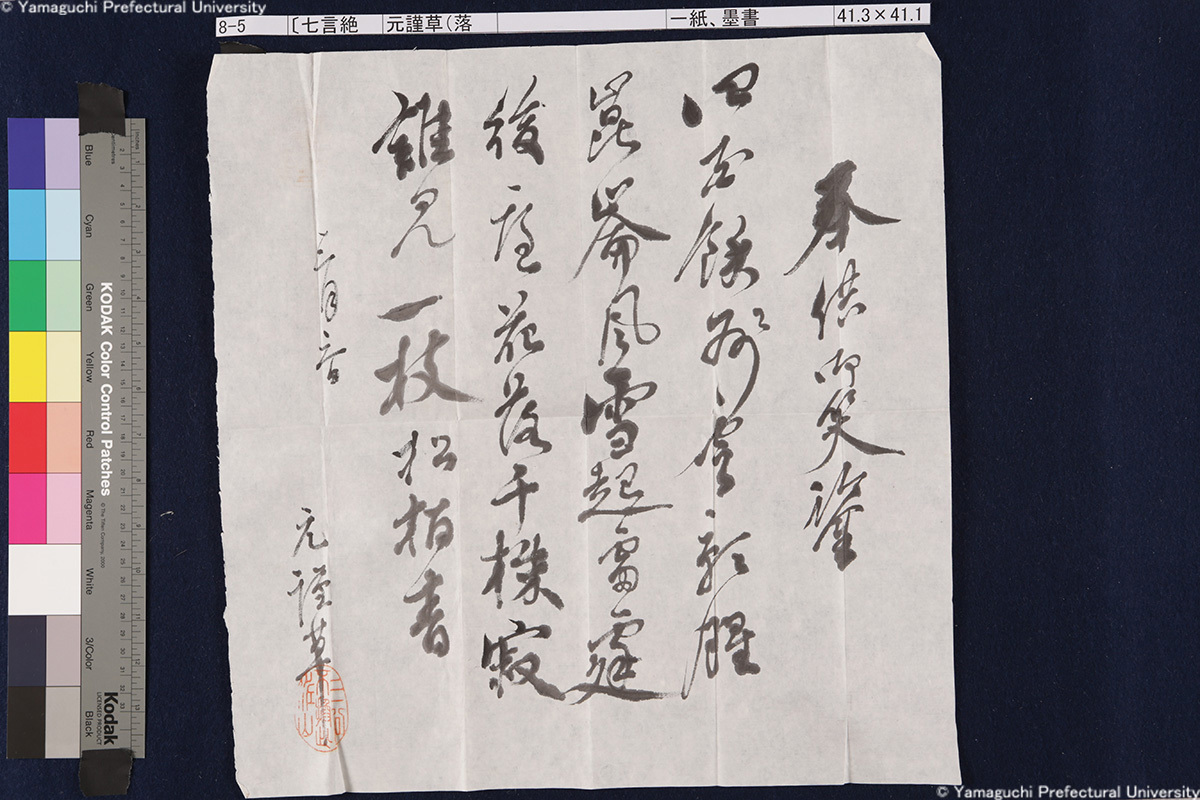 © Yamaguchi Prefectural University
8-5 〔七言絶 元謹草(落 一紙、墨書 41.3×41.1
奉供御笑鑒
四百餘州
崑崙風雪起雷霆
後庭花落千機寂
誰見一枝松柏青
三月
元謹草
KODAK Color Control Patches
Blue Cyan Green Yellow Red Magenta White 3/Color Black
© The Tiffen Company, 2000
Kodak
LICENSED PRODUCT
© Yamaguchi Prefectural University